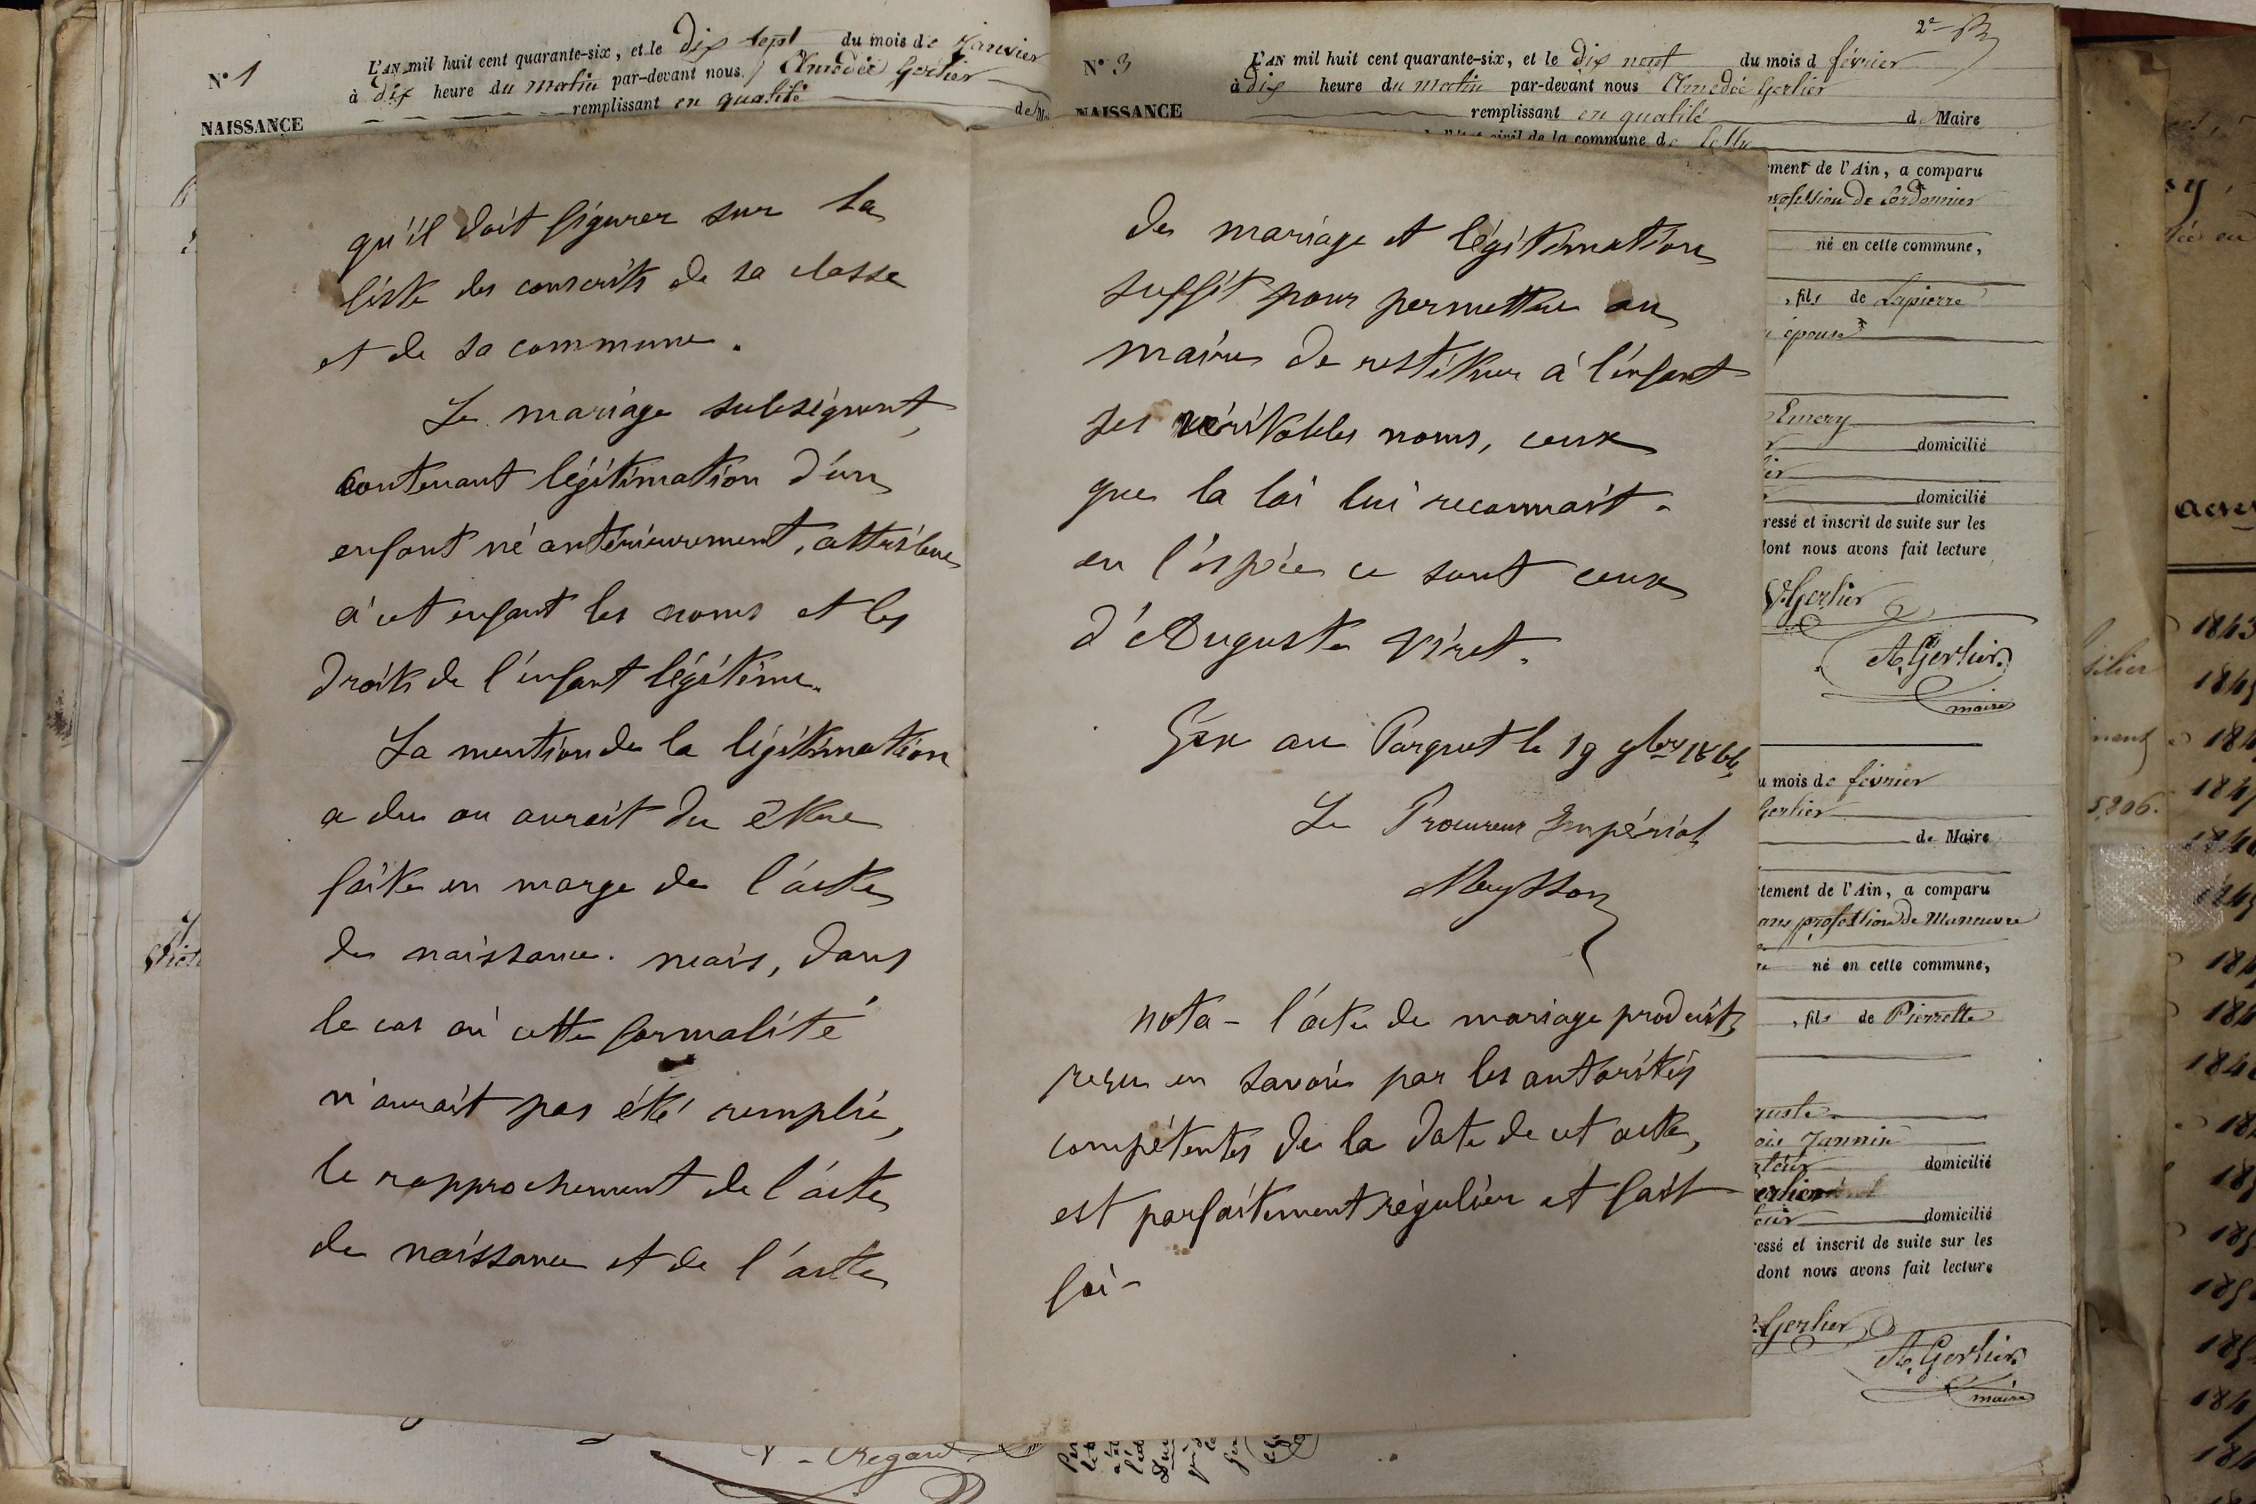 N° 1
L'AN mil huit cent quarante-six, et le dix sept du mois de Janvier
à dix heure du matin par-devant nous Amédée Gerlier
remplissant en qualité de
NAISSANCE
qu'il doit figurer sur la
liste des conscrits de sa classe
et de sa commune.
Le mariage subséquent,
contenant légitimation d'un
enfant né antérieurement, attribue
à cet enfant les noms et les
droits de l'enfant légitime.
La mention de la légitimation
a du ou aurait du être
faite en marge de l'acte
de naissance. mais, dans
le cas où cette formalité
n'aurait pas été remplie,
le rapprochement de l'acte
de naissance et de l'acte
V. Regard
2e
N° 3
L'AN mil huit cent quarante-six, et le dix neuf du mois d février
à dix heure du matin par-devant nous Amédée Gerlier
NAISSANCE
remplissant en qualité de Maire
civil de la commune de
de mariage et légitimation
suffit pour permettre au
maire de restituer à l'enfant
ses véritables noms, ceux
que la loi lui reconnait.
en l'espèce ce sont ceux
d'Auguste Viret.
Gex au Parquet le 19 9bre 1866
Le Procureur Impérial
Meysson
nota - l'acte de mariage produit,
reçu en Savoie par les autorités
compétentes de la date de cet acte,
est parfaitement régulier et fait
foi -
ement de l'Ain, a comparu
profession de Cordonnier
né en cette commune,
, fils de Lapierre
épouse
Emery
domicilié
domicilié
ressé et inscrit de suite sur les
dont nous avons fait lecture
V. Gerlier
A. Gerlier
maire
u mois de février
Gerlier
de Maire
tement de l'Ain, a comparu
ans profession de Manœuvre
né en cette commune,
, fils de Pierrette
guste
ois Jannin
domicilié
domicilié
ressé et inscrit de suite sur les
dont nous avons fait lecture
Gerlier
A. Gerlier
maire
1843